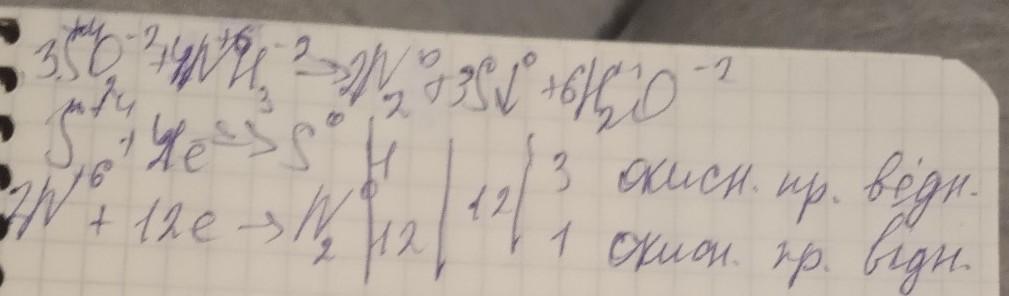 3S⁺⁴O⁻² + 4N⁺⁶H₃⁻² → 2N₂⁰ + 3S↓⁰ + 6H₂O⁻²
S⁺⁴ + 4e → S⁰ | 4 | 12 | 3 окисн. пр. відн.
2N⁺⁶ + 12e → N₂⁰ | 12 | | 1 окисн. пр. відн.